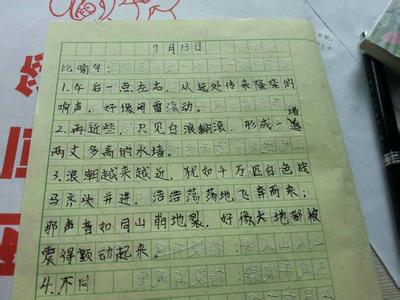 9月13日
比喻句：
1.午后一点左右，从远处传来隆隆的
响声，好像闷雷滚动。
2.再近些，只见白浪翻滚，形成一堵
两丈多高的水墙。
3.浪潮越来越近，犹如千万匹白色战
马齐头并进，浩浩荡荡地飞奔而来；
那声音如同山崩地裂，好像大地都被
震得颤动起来。
4.不同